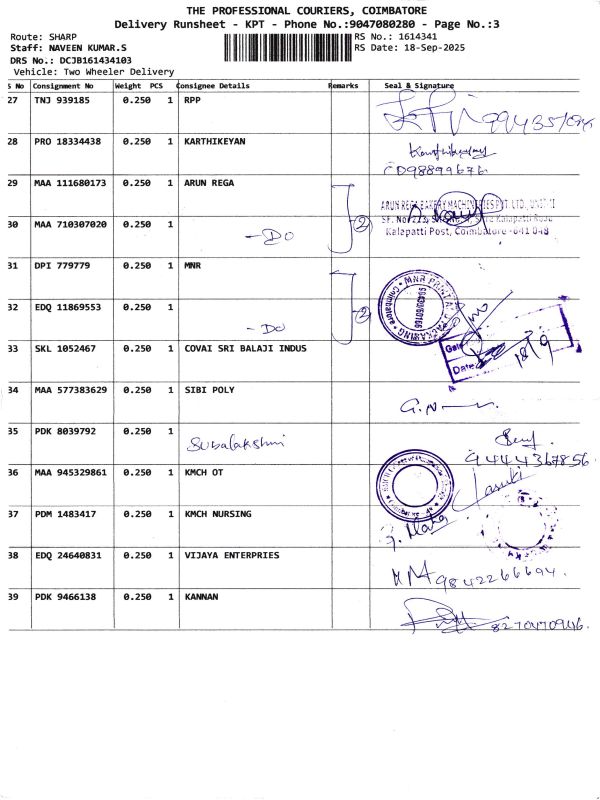 THE PROFESSIONAL COURIERS, COIMBATORE
Delivery Runsheet - KPT - Phone No.:9047080280 - Page No.:3
Route: SHARP RS No.: 1614341
Staff: NAVEEN KUMAR.S RS Date: 18-Sep-2025
DRS No.: DCJB161434103
Vehicle: Two Wheeler Delivery
S No Consignment No Weight PCS Consignee Details Remarks Seal & Signature
27 TNJ 939185 0.250 1 RPP
28 PRO 18334438 0.250 1 KARTHIKEYAN
Karthikeyan
29 MAA 111680173 0.250 1 ARUN REGA
ARUN REGA BAKERY MACHINERIES PVT. LTD.,
30 MAA 710307020 0.250 1 2
Kalapatti Post, Coimbatore - 641 048
- Do
31 DPI 779779 0.250 1 MNR
32 EDQ 11869553 0.250 1 2
- Do
33 SKL 1052467 0.250 1 COVAI SRI BALAJI INDUS
Gate
Date 18/9
34 MAA 577383629 0.250 1 SIBI POLY
35 PDK 8039792 0.250 1
Subalakshmi
9444367856
36 MAA 945329861 0.250 1 KMCH OT
37 PDM 1483417 0.250 1 KMCH NURSING
38 EDQ 24640831 0.250 1 VIJAYA ENTERPRIES
9842266694.
39 PDK 9466138 0.250 1 KANNAN
8270470946.